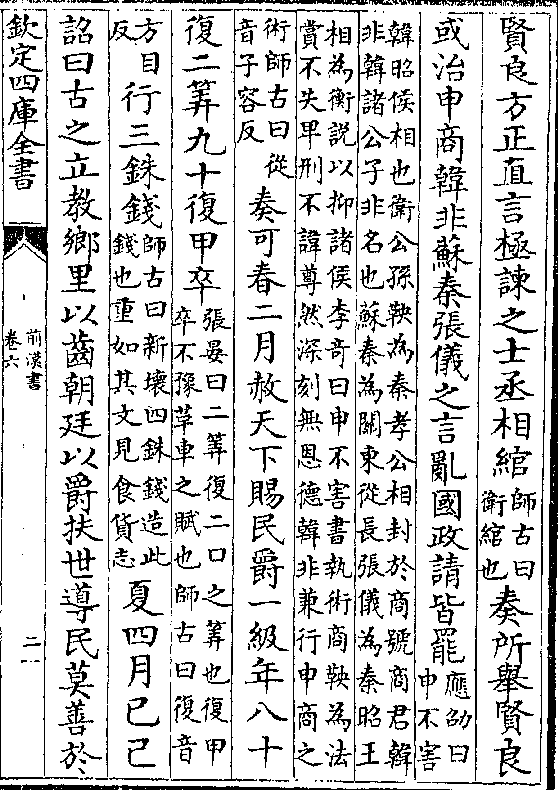 賢良方正直言極諫之士丞相綰師古曰衛綰也奏所舉賢良
或治申商韓非蘇秦張儀之言亂國政請皆罷應劭曰申不害
韓昭侯相也衛公孫鞅為秦孝公相封於商號商君韓
非韓諸公子非名也蘇秦為關東從長張儀為秦昭王
相為衡說以抑諸侯李奇曰申不害書執術商鞅為法
賞不失卑刑不諱尊然深刻無恩德韓非兼行申商之
術師古曰從音子容反奏可春二月赦天下賜民爵一級年八十
復二筭九十復甲卒張晏曰二筭復二口之筭也復甲卒不豫革車之賦也師古曰復音
方目反行三銖錢師古曰新壞四銖錢造此錢也重如其文見食貨志夏四月已己
詔曰古之立教鄉里以齒朝廷以爵扶世導民莫善於
欽定四庫全書
前漢書
卷六
二